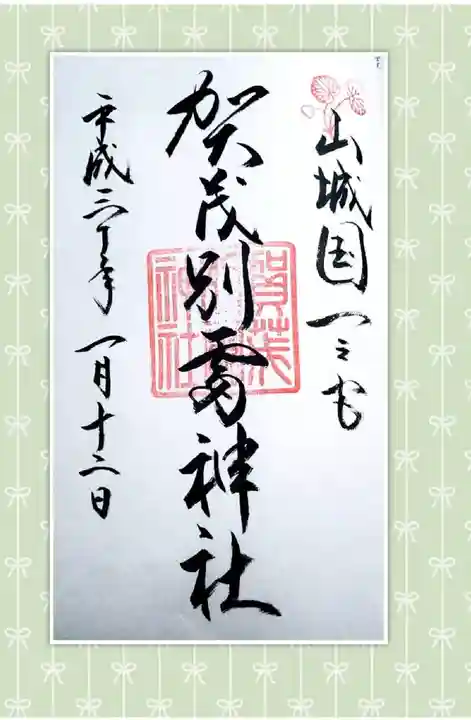 山城国一之宮
賀茂別雷神社
平成三十年 一月十二日
賀茂
神社